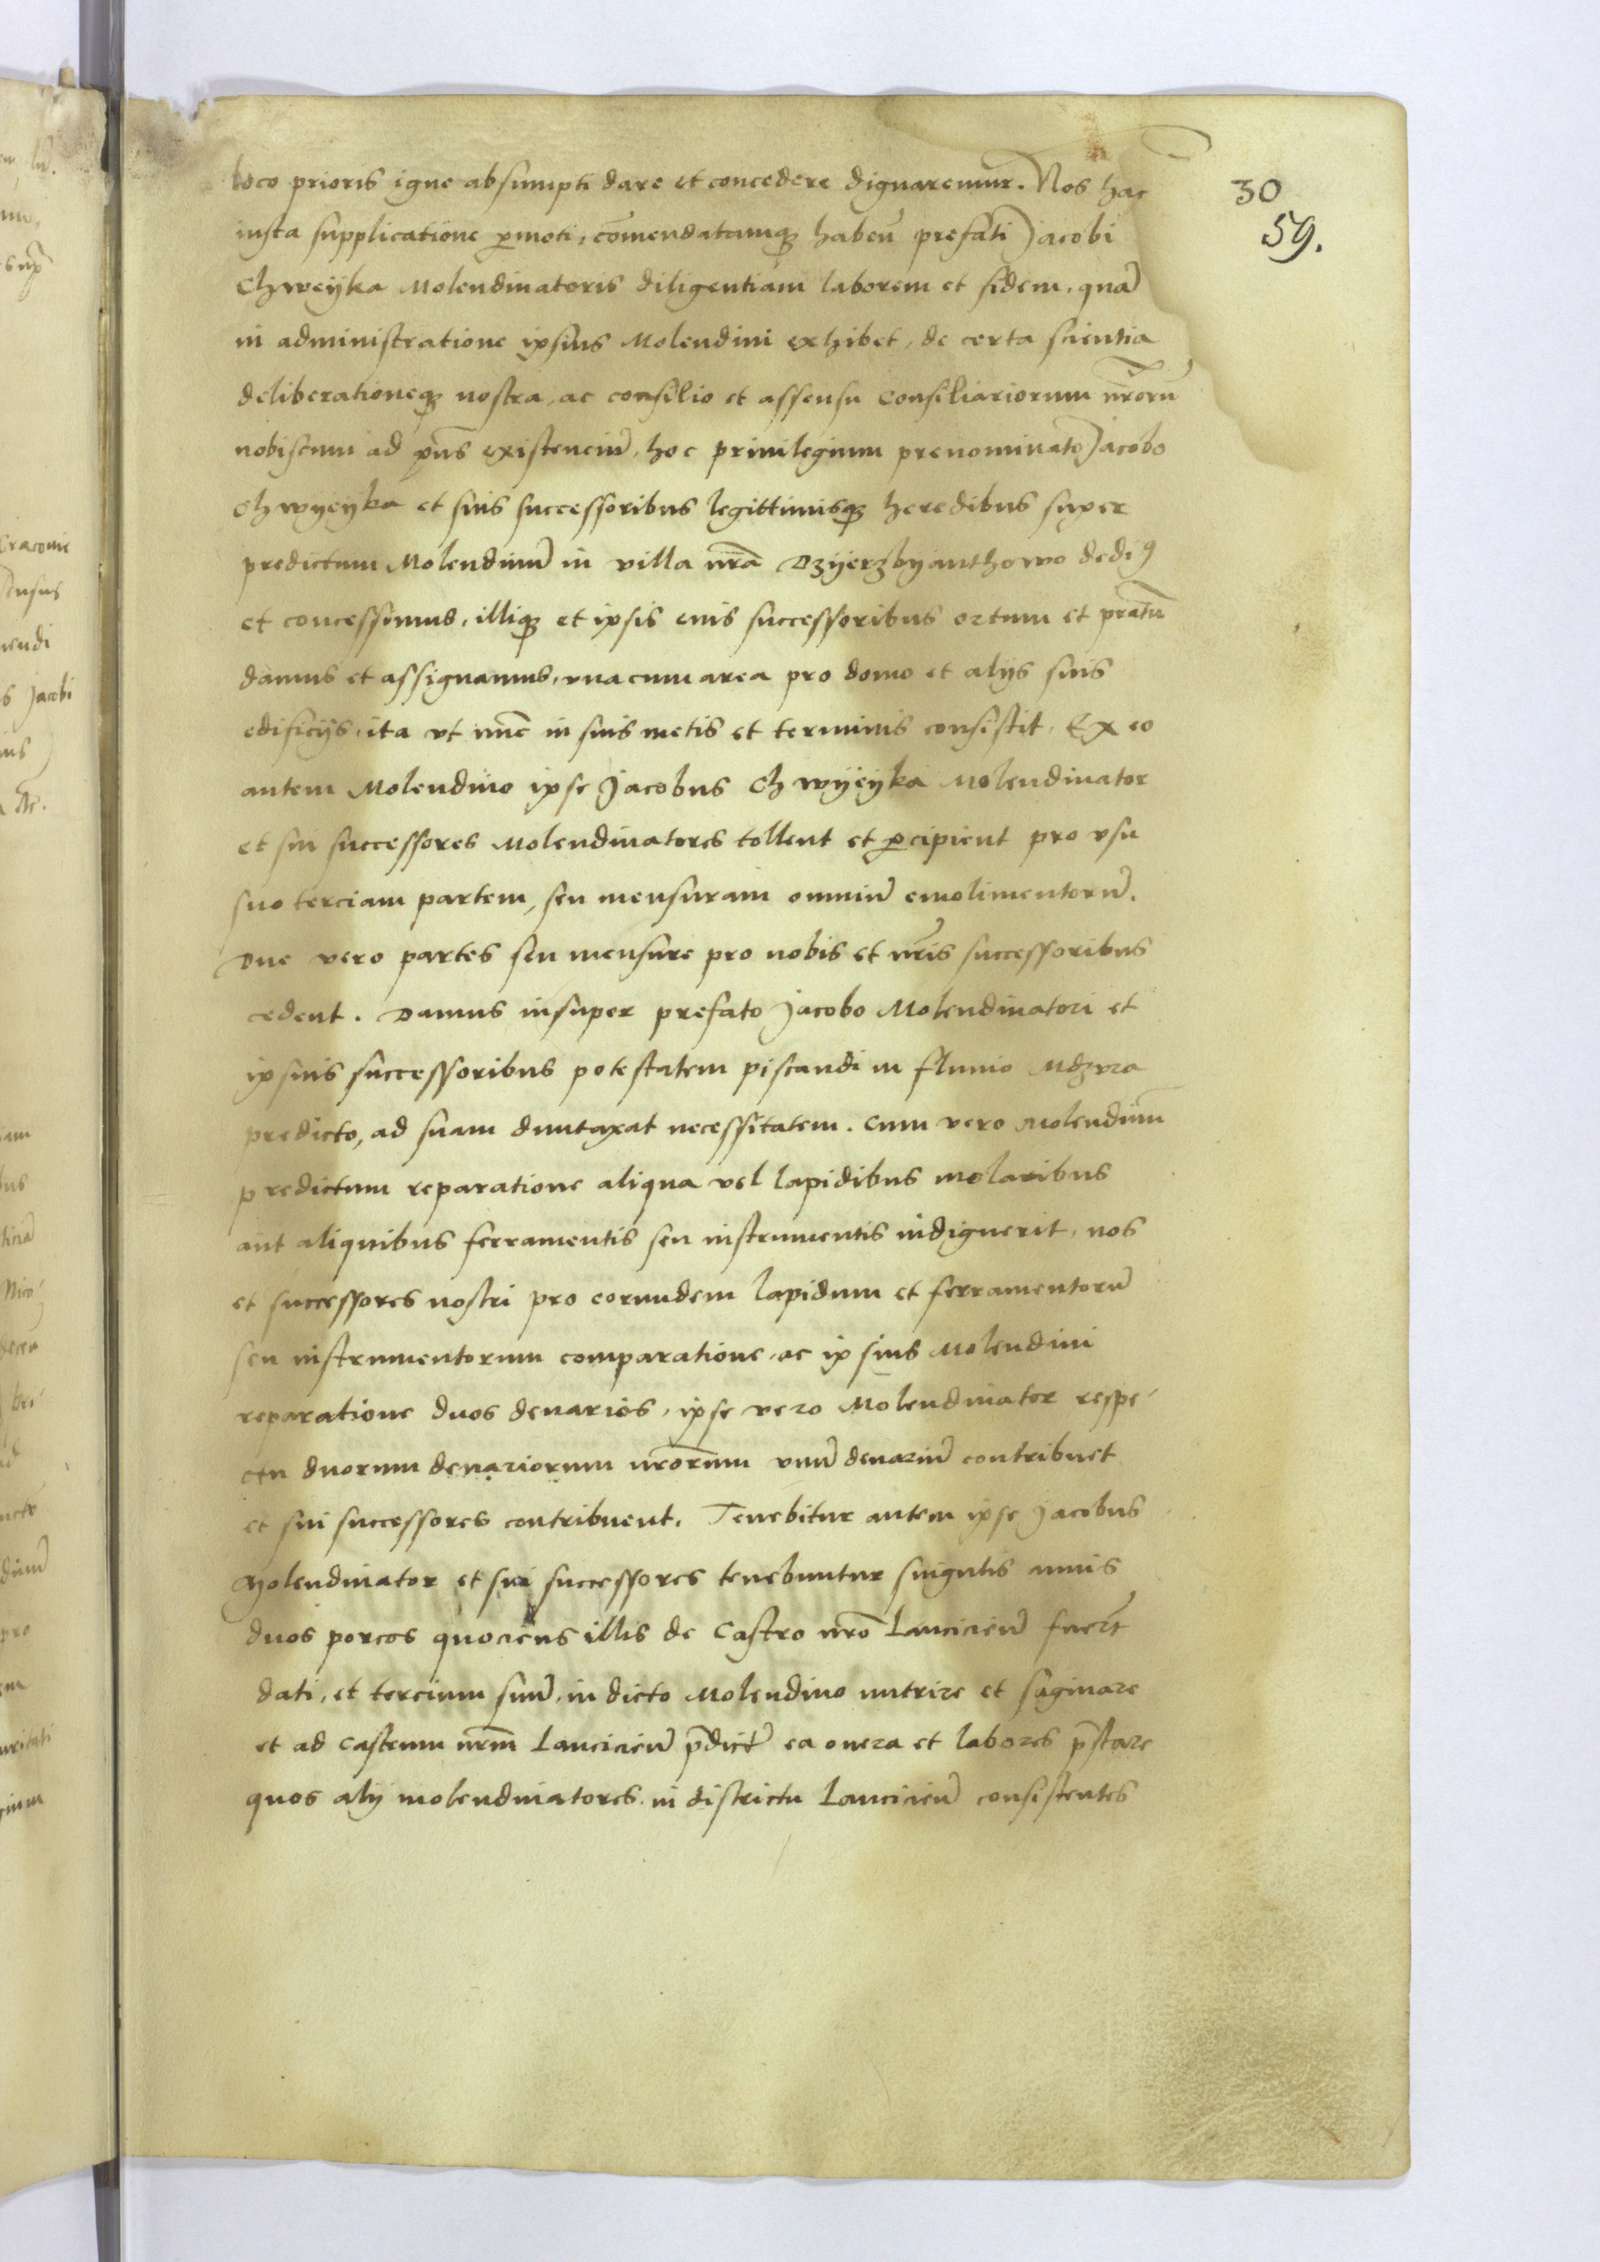 30
59.
loco prioris igne absumpti dare et concedere dignaremur. Nos hac
iusta supplicatione p̱moti, com̄endatamqꝫ haben̄ prefati Jacobi
Chweyka Molendinatoris diligentiam laborem et fidem, quā
in administratione ipsius Molendini exhibet, de certa scientia
deliberationeqꝫ nostra, ac consilio et assensu Consiliariorum nr̄orū
nobiscum ad pn̄s existenciū, hoc priuilegium prenominato Jacobo
Chwyeyka et suis successoribus legittimisqꝫ heredibus super
predictum Molendinū in villa nrā Dzyerzbyanthowo dediꝰ
et concessimus, illiqꝫ et ipsis eius successoribus ortum et pratū
damus et assignamus, vnacum area pro domo et alijs suis
edificijs, ita vt nūc in suis metis et terminis consistit. Ex eo
autem Molendino ipse Jacobus Chwyeyka Molendinator
et sui successores Molendinatores tollent et p̱cipient pro vsu
suo terciam partem, seu mensuram omniū emolimentorū.
Due vero partes seu mensure pro nobis et nr̄is successoribus
cedent. Damus insuper prefato Jacobo Molendinatori et
ipsius successoribus potestatem piscandi in fluuio Mdzura
predicto, ad suam duntaxat necessitatem. Cum vero Molendinū
predictum reparatione aliqua vel lapidibus molaribus
aut aliquibus ferramentis seu instrumentis indiguerit, nos
et successores nostri pro eorundem lapidum et ferramentorū
seu instrumentorum comparatione, ac ipsius Molendini
reparatione duos denarios, ipse vero Molendinator respe-
ctu duorum denariorum nr̄orum vnū denariū contribuet
et sui successores contribuent. Tenebitur autem ipse Jacobus
Molendinator et sui successores tenebuntur singulis annis
duos porcos quociens illis de Castro nr̄o Lancicieñ fueri̅t
dati, et tercium suū, in dicto Molendino nutrire et saginare
et ad Castrum nr̄m Lancicieñ p̄dictū ea onera et labores p̄stare
quos alij molendinatores in districtu Lancicieñ consistentes